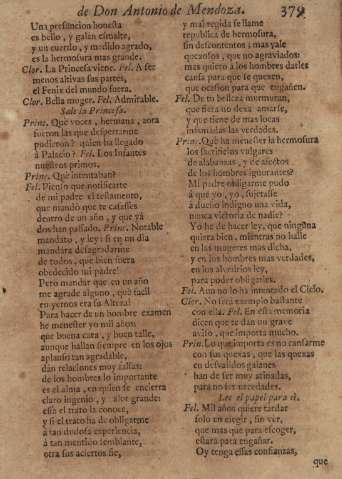 de Don Antonio de Mendoza. 379
Una presuncion honesta
es bello, y galan esmalte,
y un cuerdo, y medido agrado,
es la hermosura mas grande.
Clor. La Princesa viene. Fel. A ser
menos altivas sus partes,
el Fenix del mundo fuera.
Clor. Bella muger. Fel. Admirable.
Sale la Princesa.
Princ. Què voces, hermana, aora
fueron las que despertarme
pudieron? quien ha llegado
à Palacio? Fel. Los Infantes
nuestros primos.
Princ. Què intentaban?
Fel. Vienen que notificarte
de mi padre el testamento,
que mandò que te casasses
dentro de un año, y que yà
dos han passado. Princ. Notable
mandato, y ley: si en un dia
mandàra desagradarme
de todos, què bien fuera
obedecido mi padre!
Pero mandar que en un año
me agrade alguno, què facil
en yernos era su Alteza!
Para hacer de un hombre examen
he menester yo mil años:
que buena cara, y buen talle,
aunque hallan siempre en los ojos
aplauso tan agradable,
dàn relaciones muy falsas:
de los hombres lo importante
es el alma, en quien se encierra
claro ingenio, y valor grande:
essa el trato la conoce,
y si el trato ha de obligarme
à tan dudosa experiencia,
à tan mentido semblante,
otra sus aciertos fie,
y mal regida se llame
republica de hermosura,
sin descontentos; mas vale
quexosos, que no agraviados:
mas quiero à los hombres darles
causa para que se quexen,
que ocasion para que engañen.
Fel. De tu belleza murmuran,
que fiera no dexa amarse,
y que tiene de mas locas
infamadas las verdades.
Princ. Què ha menester la hermosura
los sacrificios vulgares
de alabanzas, y de afectos
de los hombres ignorantes?
Mi padre obligarme pudo
à què yo, yo, sujetasse
à dueño indigno una vida,
nunca victoria de nadie?
Yo he de hacer ley, que ninguna
quiera bien, mientras no halle
en las mugeres mas dicha,
y en los hombres mas verdades,
en los alvedrios ley,
para poder obligarles.
Fel. Aun no lo ha intentado el Cielo.
Clor. No serà exemplo bastante
con ella. Fel. En esta memoria
dicen que te dàn un grave
aviso, que importa mucho.
Prin. Lo que importa es no cansarme
con sus quexas, que las quexas
en desvalidos galanes
han de ser muy atinadas,
para no ser necedades.
Lee el papel para sì.
Fel. Mil años quiere tardar
solo en elegir, sin ver,
que mas que para escoger,
estarà para engañar.
Oy tenga essas confianzas,
que